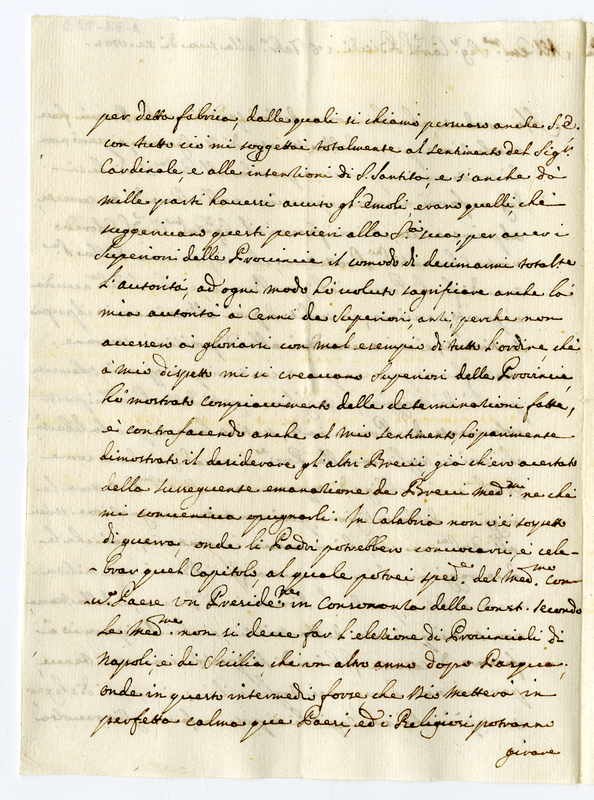 per detta fabrica, dalle quali si chiamò persuaso anche S. E.
con tutto ciò mi soggettai totalmente al sentimento del Sig.r
Cardinale, e alle intenzioni di S. Santità, e s'anche da
mille parti havessi avuto gl'Emoli, erano quelli, che
suggerivano questi pensieri alla S.tà sua, per aver i
Superiori delle Provincie il comodo di decimarmi total.te
l'autorità, ad ogni modo hò voluto sagrificare anche la
mia autorità à Cenni de Superiori, anzi perche non
avessero à gloriarsi con mal esempio di tutto l'ordine, chè
à mio dispetto mi si creavano Superiori delle Provincie
hò mostrato compiacimento delle determinazioni fatte,
e contrafacendo anche al mio sentimento, hò parimente
dimostrato il desiderare gl'altri Brevi già ch'ero accertato
della susseguense emanazione de Brevi med.mi ne chè
mi conveniva opugnarli. In Calabria non v'è sospetto
di guerra, onde li Padri potrebbero convocarsi, e cele-
brar quel Capitolo al quale potrei sped.e del med.mo
Paese un Preside.te in Consonanza delle Const. secondo
le Med.me non si deve far l'elezione di Provinciali di
Napoli, e di Sicilia, che un altro anno dopo Pasqua,
onde in questo intermedi forse che Dio metterà in
perfetta calma que Paesi, ed i Religiosi potranno
girare